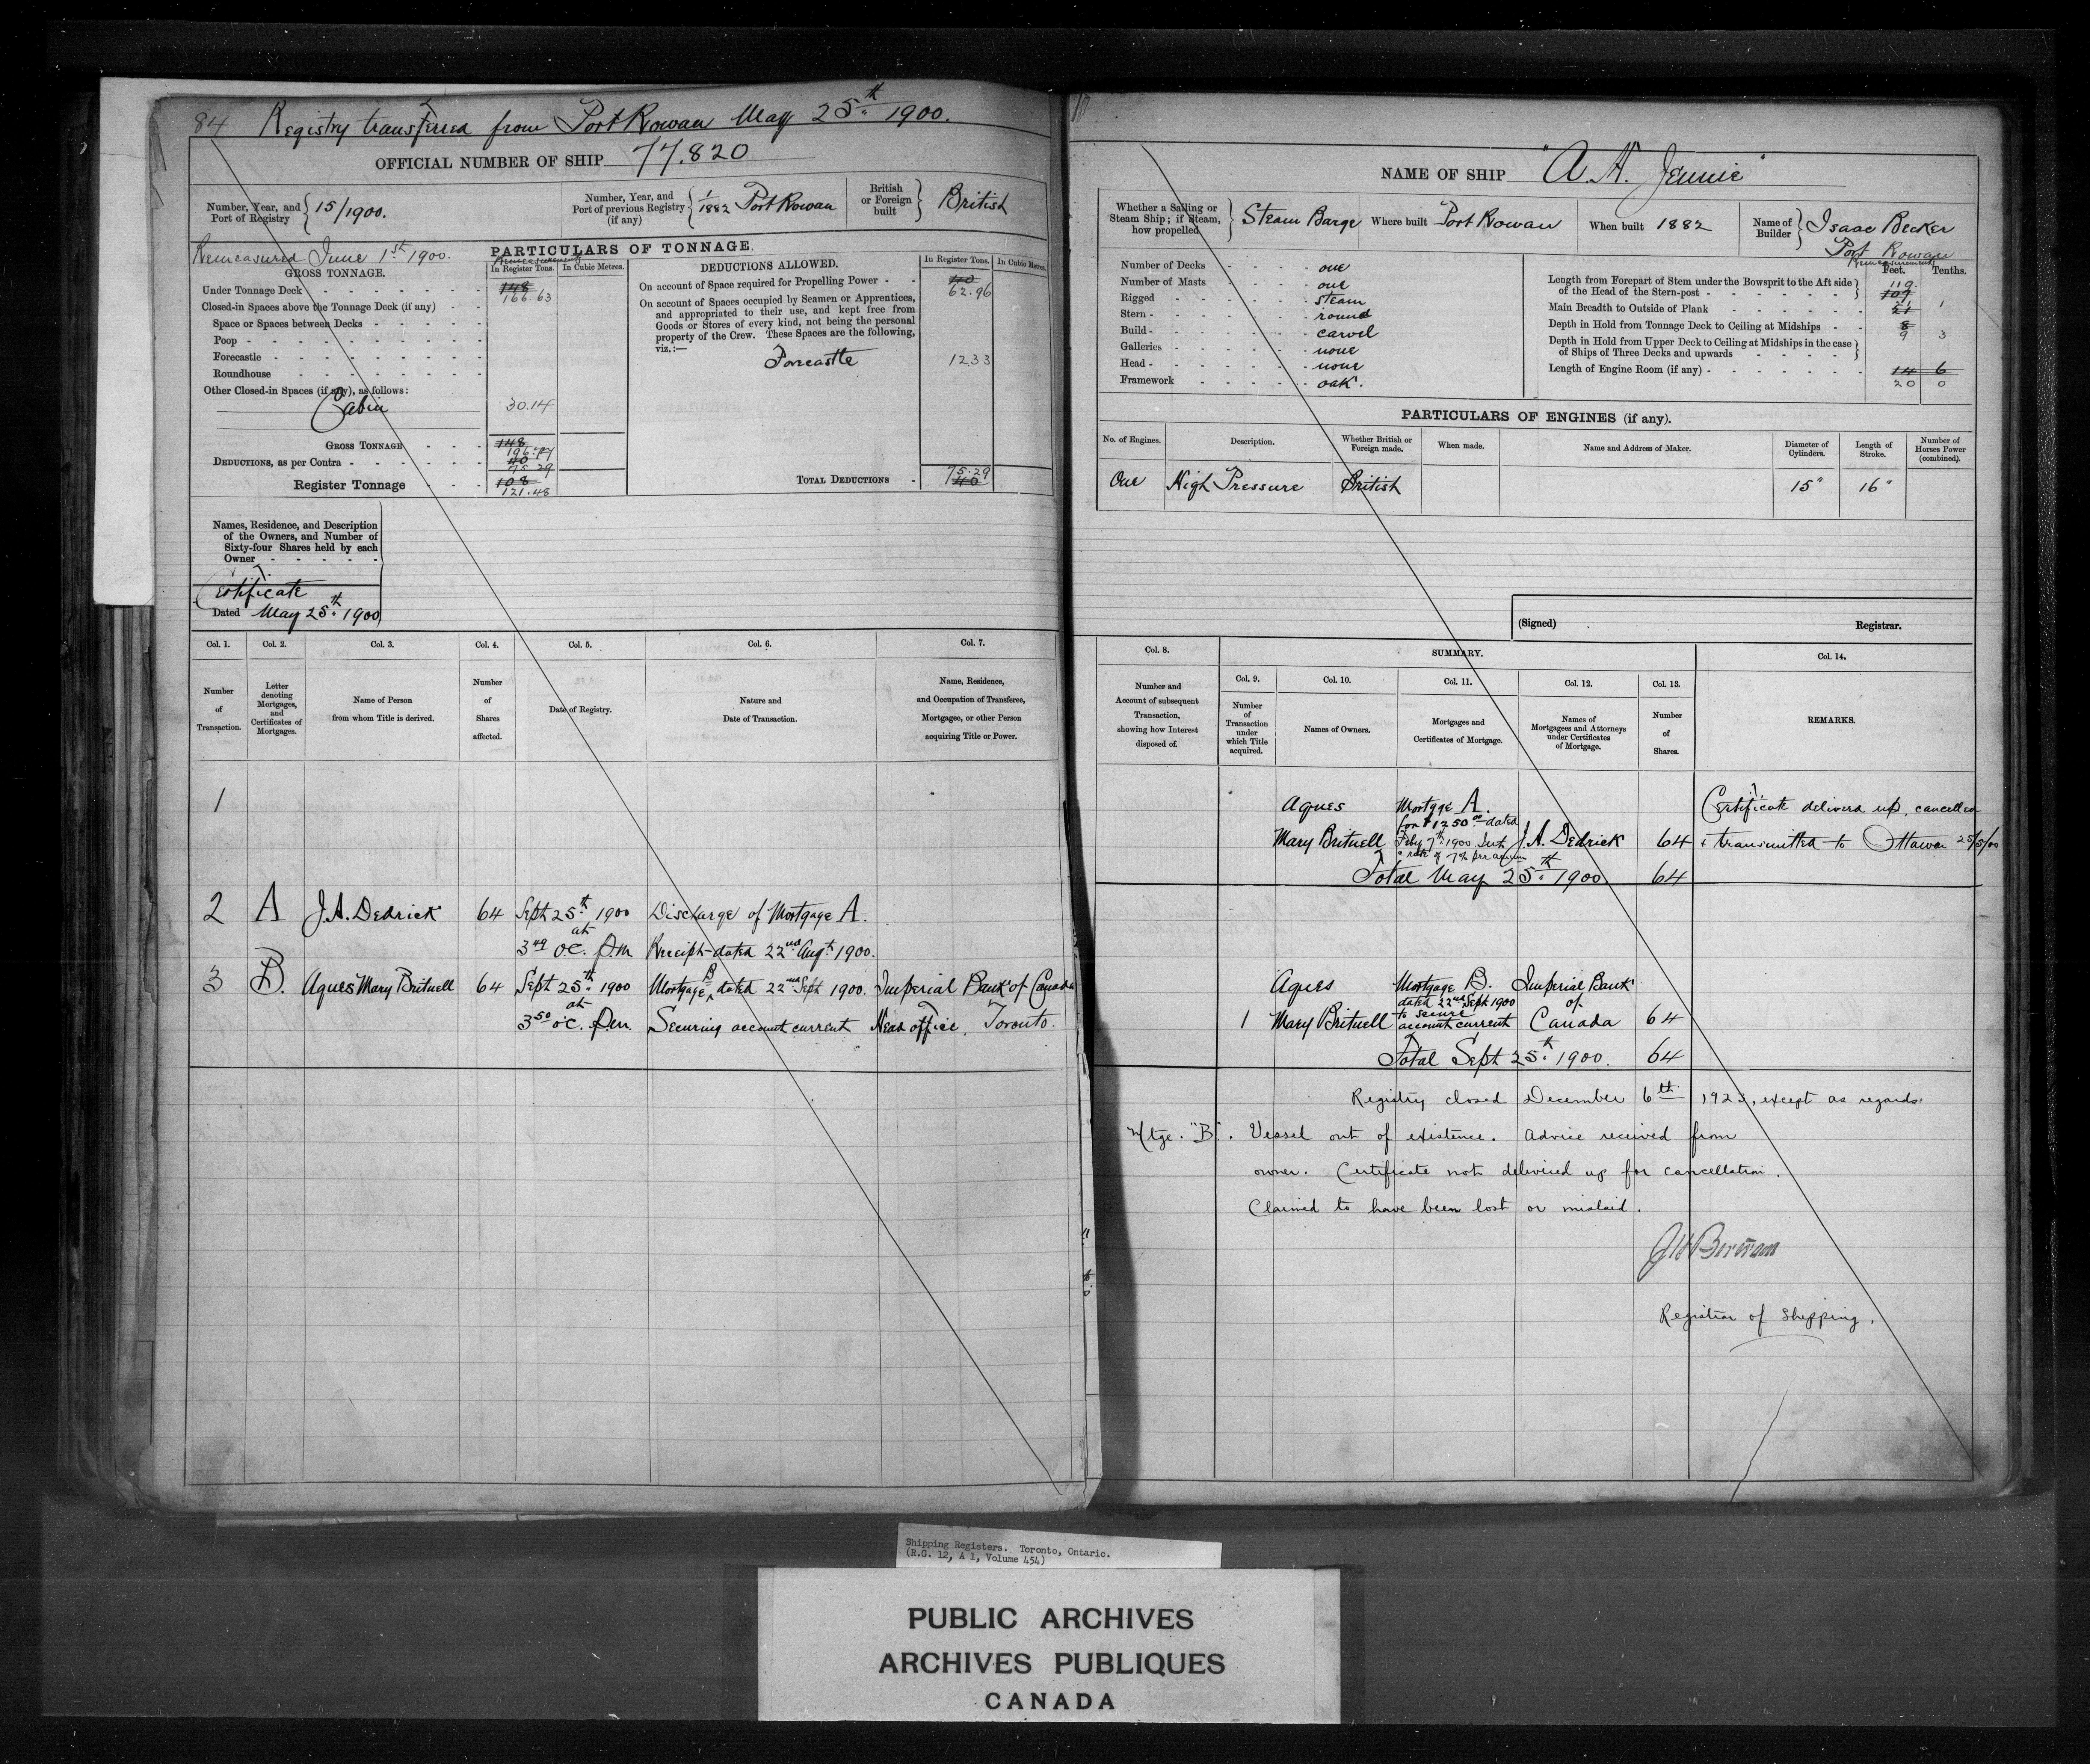 84 Registry transferred from Port Rowan May 25th 1900.
OFFICIAL NUMBER OF SHIP 77.820
Number, Year, and Port of Registry 15/1900.
Number, Year, and Port of previous Registry (if any) 1/1882 Port Rowan
British or Foreign built British
Remeasured June 1st 1900.
PARTICULARS OF TONNAGE.
GROSS TONNAGE.
Remeasurement
In Register Tons. In Cubic Metres.
Under Tonnage Deck 148 166.63
Closed-in Spaces above the Tonnage Deck (if any)
Space or Spaces between Decks
Poop
Forecastle
Roundhouse
Other Closed-in Spaces (if any), as follows:
Cabin 30.14
GROSS TONNAGE 148 196.77
DEDUCTIONS, as per Contra 40 75.29
Register Tonnage 108 121.48
DEDUCTIONS ALLOWED.
In Register Tons. In Cubic Metres.
On account of Space required for Propelling Power 40 62.96
On account of Spaces occupied by Seamen or Apprentices,
and appropriated to their use, and kept free from
Goods or Stores of every kind, not being the personal
property of the Crew. These Spaces are the following,
viz.:—
Forcastle 12.33
TOTAL DEDUCTIONS 75.29 40
Names, Residence, and Description
of the Owners, and Number of
Sixty-four Shares held by each
Owner
Certificate
Dated May 25th 1900
Col. 1. Col. 2. Col. 3. Col. 4. Col. 5. Col. 6. Col. 7.
Number of Transaction.
Letter denoting Mortgages, and Certificates of Mortgages.
Name of Person from whom Title is derived.
Number of Shares affected.
Date of Registry.
Nature and Date of Transaction.
Name, Residence, and Occupation of Transferee, Mortgagee, or other Person acquiring Title or Power.
1
2 A J.A. Dedrick 64 Sept 25th 1900 Discharge of Mortgage A.
at
3 49 o.c. p.m. Receipt dated 22nd Augt 1900.
3 B. Agnes Mary Britnell 64 Sept 25th 1900 Mortgage B dated 22nd Sept 1900. Imperial Bank of Canada
at
3 50 o'c. p.m. Securing account current Head office, Toronto.
NAME OF SHIP "A. H. Jennie"
Whether a Sailing or Steam Ship; if Steam, how propelled Steam Barge
Where built Port Rowan
When built 1882
Name of Builder Isaac Becker
Port Rowan
Number of Decks one
Number of Masts one
Rigged steam
Stern round
Build carvel
Galleries none
Head none
Framework oak.
Remeasurement
Feet. Tenths.
Length from Forepart of Stem under the Bowsprit to the Aft side
of the Head of the Stern-post 119 109
Main Breadth to Outside of Plank 21 21 1
Depth in Hold from Tonnage Deck to Ceiling at Midships 8 9 3
Depth in Hold from Upper Deck to Ceiling at Midships in the case
of Ships of Three Decks and upwards
Length of Engine Room (if any) 14 6
20 0
PARTICULARS OF ENGINES (if any).
No. of Engines. Description. Whether British or Foreign made. When made. Name and Address of Maker. Diameter of Cylinders. Length of Stroke. Number of Horses Power (combined).
One High Pressure British 15" 16"
(Signed) Registrar.
Col. 8. SUMMARY. Col. 14.
Col. 9. Col. 10. Col. 11. Col. 12. Col. 13.
Number and Account of subsequent Transaction, showing how Interest disposed of.
Number of Transaction under which Title acquired.
Names of Owners.
Mortgages and Certificates of Mortgage.
Names of Mortgagees and Attorneys under Certificates of Mortgage.
Number of Shares.
REMARKS.
Agnes Mortgage A. Certificate delivered up, cancelled
for $1250.00 dated
Mary Britnell Feby 7th 1900 Int J.A. Dedrick 64 & transmitted to Ottawa 25/5/00
@ rate of 7% per annum
Total May 25th 1900. 64
Agnes Mortgage B. Imperial Bank
dated 22nd Sept 1900 of
to secure
1 Mary Britnell account current Canada 64
Total Sept 25th 1900. 64
Registry closed December 6th 1923, except as regards
Mtge. "B". Vessel out of existence. Advice received from
owner. Certificate not delivered up for cancellation.
Claimed to have been lost or mislaid.
Registrar of Shipping.
Shipping Registers. Toronto, Ontario.
(R.G. 12, A 1, Volume 454)
PUBLIC ARCHIVES
ARCHIVES PUBLIQUES
CANADA